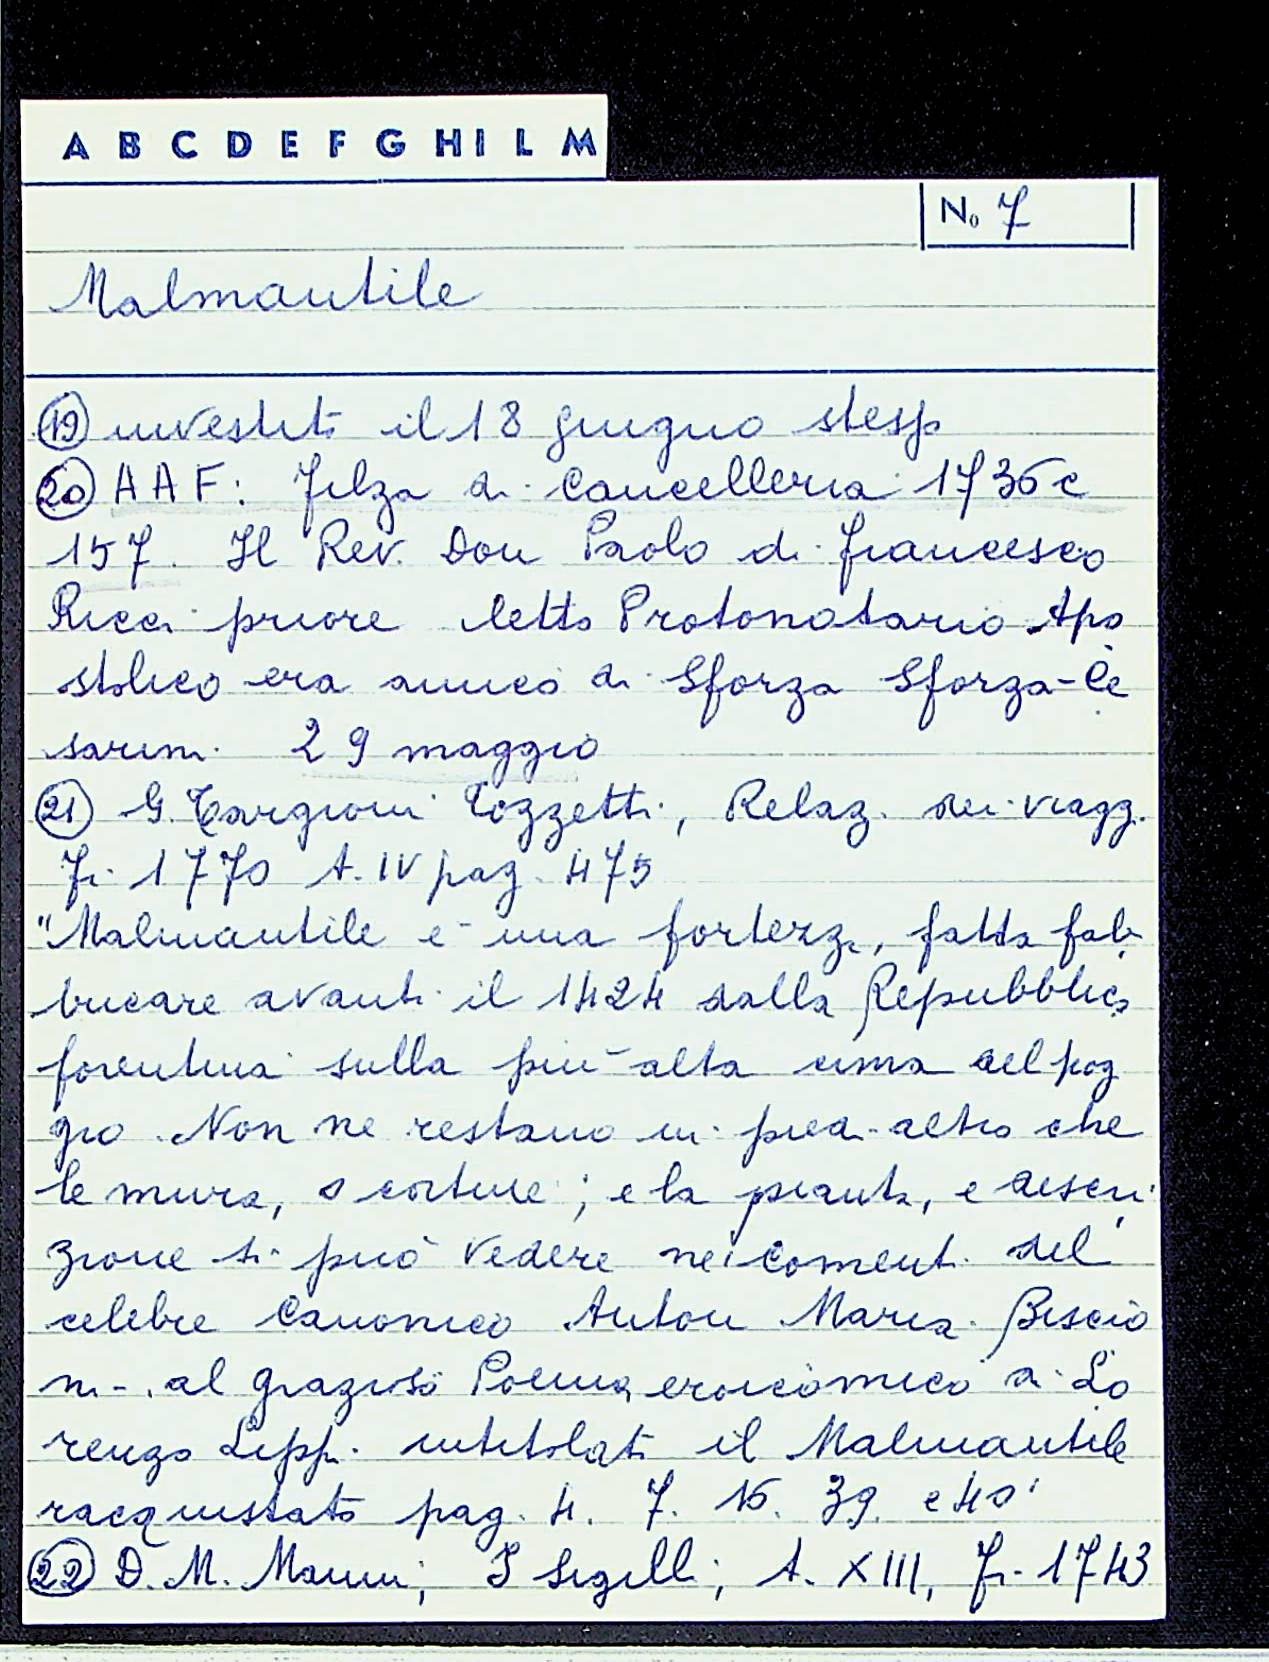 A B C D E F G H I L M
No 7
Malmantile
19 investito il 18 giugno stesso
20 AAF: Filza di Cancelleria 1736 c
157. Il Rev. Don Paolo di Francesco
Ricci priore detto Protonotario Apo
stolico era amico di Sforza Sforza-Ce
sarini. 29 maggio
21 G. Targioni Tozzetti, Relaz. dei viagg.
Fi. 1770 t. IV pag. 475
"Malmantile è una fortezza, fatta fab
bricare avanti il 1424 dalla Repubblica
fiorentina sulla più alta cima del pog
gio. Non ne restano in piedi altro che
le mura, o cortine; e la pianta, e descri
zione si può vedere nei Coment. del
celebre Canonico Anton Maria Biscio
ni-. al grazioso Poema eroicomico di Lo
renzo Lippi intitolato il Malmantile
racquistato pag. 4. 7. 15. 39. e 40"
22 D. M. Manni, I Sigilli, t. XIII, Fi. 1743